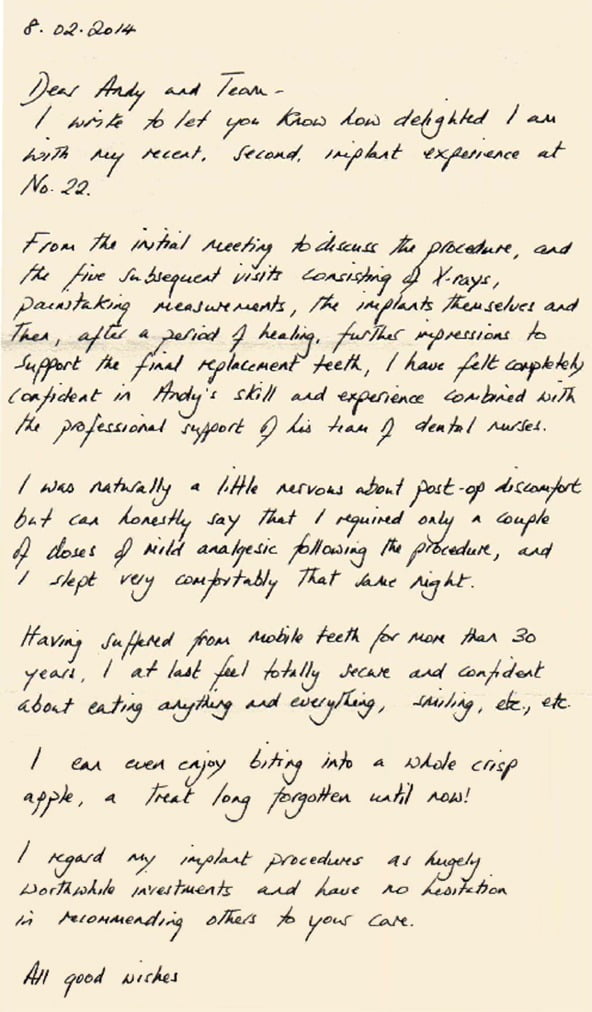 8.02.2014
Dear Andy and Team -
I write to let you know how delighted I am
with my recent, second, implant experience at
No. 22.
From the initial meeting to discuss the procedure, and
the five subsequent visits consisting of X-rays,
painstaking measurements, the implants themselves and
then, after a period of healing, further impressions to
support the final replacement teeth, I have felt completely
confident in Andy's skill and experience combined with
the professional support of his team of dental nurses.
I was naturally a little nervous about post-op discomfort
but can honestly say that I required only a couple
of doses of mild analgesic following the procedure, and
I slept very comfortably that same night.
Having suffered from mobile teeth for more than 30
years, I at last feel totally secure and confident
about eating anything and everything, smiling, etc., etc.
I can even enjoy biting into a whole crisp
apple, a treat long forgotten until now!
I regard my implant procedures as hugely
worthwhile investments and have no hesitation
in recommending others to your care.
All good wishes